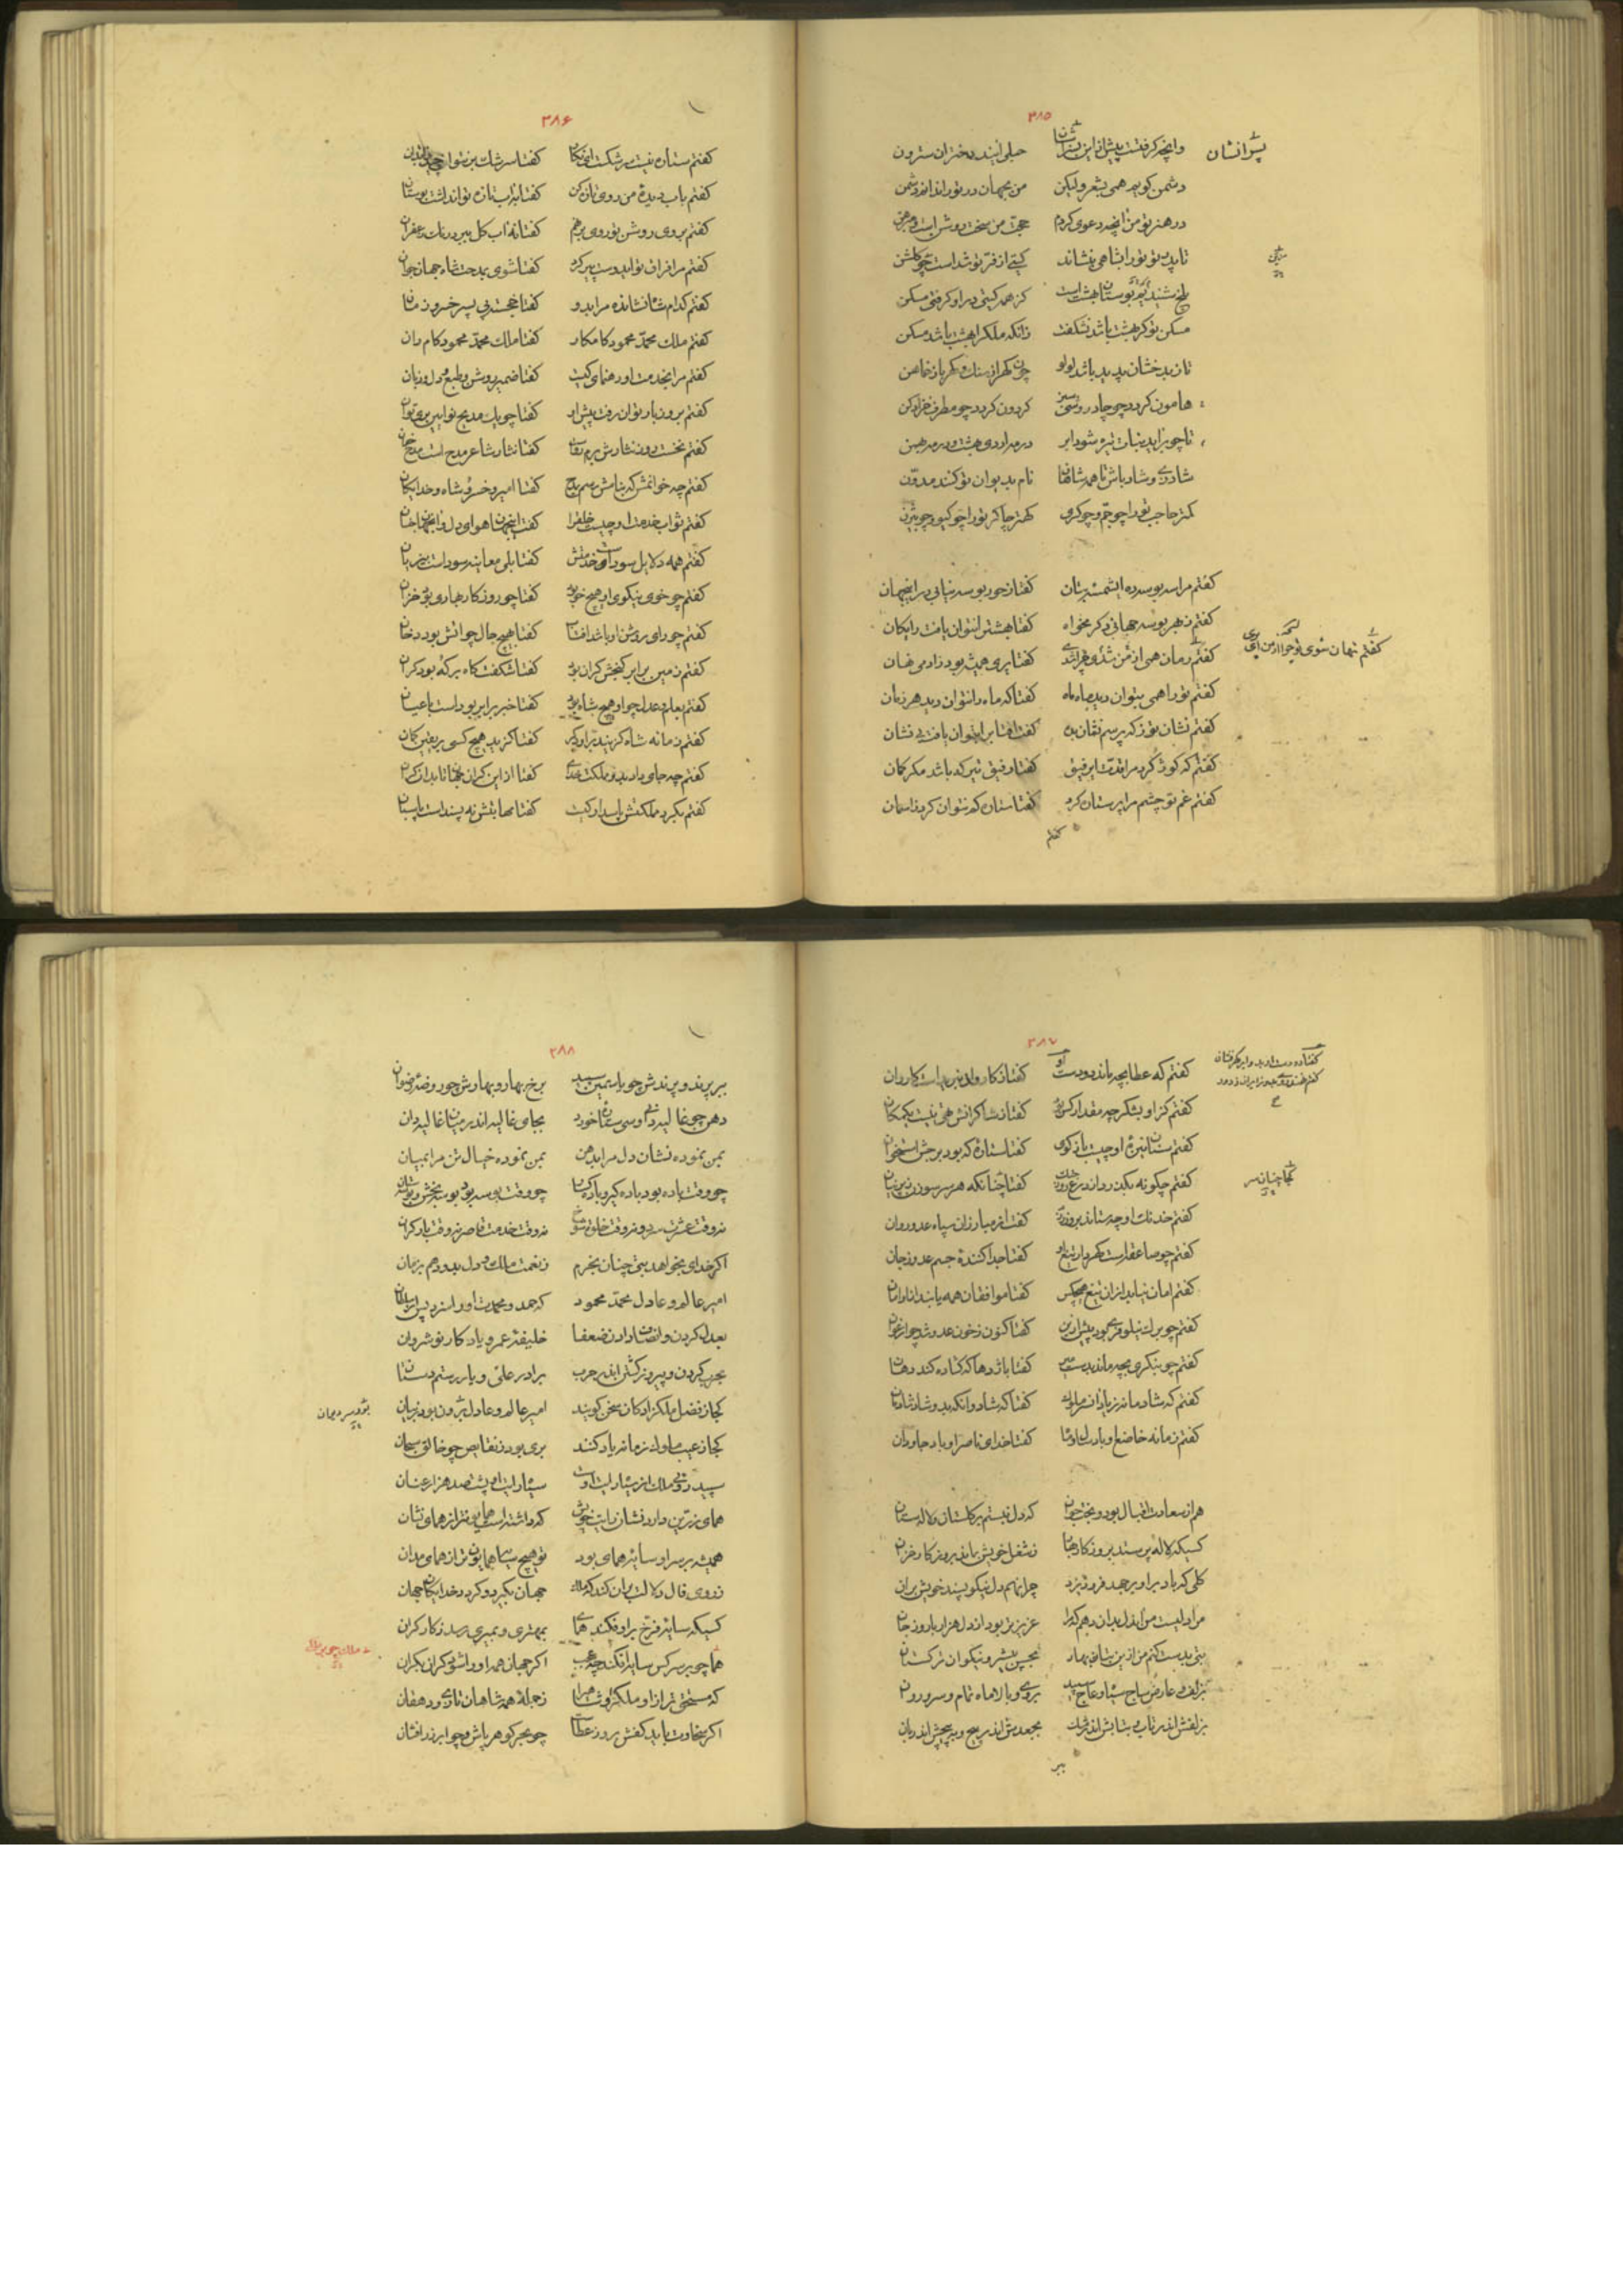 ۳۸۵
پسرانشان
وانچه گرفتست پیش ازین پسرانشان حبلی آیند دختران سترون
دشمن گوید همی بشعر ولیکن من بجهان در تو را ندانم دشمن
در هنر تو من آنچه دعوی کردم حجت من سخت روشن است و مبرهن
تا پدر تو تو را بشاهی بنشاند گیتی از فر تو شداست چو گلشن
بلخ شنیدم که بوستان بهشت است کز همه گیتی در او گرفتی مسکن
مسکن تو گر بهشت باشد نشکفت زانکه ملک را بهشت باشد مسکن
تا ز بدخشان پدید باشد لولو چون گهر از سنگ و کهربا ز خماهن
هامون گردد چو چادر وشی سبز گردون گردد چو مطرف خز ادکن
تا چو برآید نبات تیره شود ابر
شاد زی و شاد باش تا همه شاهان نام بدیوان تو کنند مدون
کمتر حاجب تو را چو جم و چو کسری کهتر چاکر تو را چو گیو و چو بیژن
گفتم مرا سه بوسه ده ای شمسه بتان گفتا ز حور بوسه نیابی در این جهان
گفتم ز بهر بوسه جهانی دگر مخواه گفتا بهشت را نتوان یافت رایگان
گفتم نهان شوی تو چرا از من ای پری
گفتا پری همیشه بود ز آدمی نهان
گفتم تو را همی نتوان دید ماه ماه گفتا که ماه را نتوان دید هر زمان
گفتم نشان تو ز که پرسم نشان بده گفت آفتاب را بتوان یافت بی نشان
گفتم که کوژ کرد مرا قدت ای رفیق گفتا رفیق تیر که باشد مگر کمان
گفتم غم تو چشم مرا پر ستاره کرد گفتا ستاره کم نتوان کرد ز آسمان
گفتم
۳۸۶
گفتم ستاره نیست سرشکست ای نگار گفتا سرشک بر نتوان چیدن
گفتم بآب دیده من روی تازه کن گفتا بآب تازه توان داشت بوستان
گفتم بروی روشن تو روی برنهم گفتا که آب گل ببرد رنگ زعفران
گفتم مرا فراق تو ای دوست پیر کرد گفتا شوی بمدحت شاه جهان جوان
گفتم کدام شاه نشان ده مرا بدو گفتا خجسته پی پسر خسرو زمان
گفتم ملک محمد محمود کامکار گفتا ملک محمد محمود کامران
گفتم مرا بخدمت او رهنمای کیست گفتا ضمیر روشن و طبع و دل و زبان
گفتم بروز بار توان رفت پیش او گفتا چو یک مدیح نو آیین بری توان
گفتم نخست روز نثارش برم ثنا گفتا نثار شاعر مدح است مدح خوان
گفتم چه خوانمش که بنامش رسم بمدح گفتا امیر و خسرو و شاه و خدایگان
گفتم ثواب خدمت او چیست خلق را گفت این جهان هوای دل و آن جهان جنان
گفتم همه دلایل سود است خدمتش گفتا بلی معاینه سود است بی زیان
گفتم چو خوی نیکوی او هیچ خو بود گفتا چو روزگار بهاری بود خزان
گفتم چو رای روشن او باشد آفتاب گفتا بهیچ حال چو آتش بود دخان
گفتم زمین برابر گنجش گران بود گفتا شگفت کاه بر که بود گران
گفتم بعلم و عدل چو او هیچ شاه بود گفتا خبر برابر بوده است با عیان
گفتم زمانه شاه گزیند بر او دگر گفتا گزیده هیچ کسی بر یقین گمان
گفتم چه جای دارد در مملکت عدو
گفتم بگرد مملکتش پاسدار کیست گفتا مهابتش نه بسنده است پاسبان
۳۸۷
گفتم که عطا بچه ماند دو دست او
گفتم کز او بشکر چه مقدار کس بود گفتا ز شاکرانش تهی نیست یک مکان
گفتم سنان نیزه او چیست بازگوی گفتا ستاره که بود برجش استخوان
گفتم چگونه بگذرد از درع روز جنگ گفتا چنانکه هر سر سوزن ز پرنیان
گفتم خدنگ او چه ستاند بروز رزم گفت از مبارزان سپاه عدو روان
گفتم چو صاعقه است گهردار تیغ او گفتا جدا کننده جسم عدو ز جان
گفتم امان نیابد از آن تیغ هیچکس گفتا موافقان همه یابند از او امان
گفتم چو برگ نیلوفر بود پیش ازین گفتا کنون ز خون عدو شد چو ارغوان
گفتم چو بنگری بچه ماند بدست میر گفتا باژدها که گشاده کند دهان
گفتم که شادمانه زیاد آن سر ملوک گفتا که شاد و آنکه بدو شاد شادمان
گفتم زمانه خاضع او باد سال و ماه گفتا خدای ناصر او باد جاودان
هم از سعادت و اقبال بود و بخت جوان که دل نبستم بر گلستان و لاله ستان
کسیکه لاله پرستد بروزگار بهار ز شغل خویش بماند بروزگار خزان
گلی که باد بر او برجهد فرو ریزد چرا نهم دل نیکو پسند خویش بر آن
مرا دلیست من آن دل بدان دهم که مرا عزیزتر بود از دل هزار بار و ز جان
بتی بدست کنم من ازین بتان بهار بحسن پیشرو نیکوان ترکستان
بزلف و عارض ساج سیاه و عاج سپید بروی و بالا ماه تمام و سرو روان
بزلفش اندر تاب و بتابش اندر مشک بجعدش اندر پیچ و بپیچش اندر بان
ببر
۳۸۸
ببر پرند و پرندش چو یاسمین سپید برخ بهار و بهارش چو روضه رضوان
دهن چو غالیه دانی و سی ستاره خورد بجای غالیه اندر میان غالیه دان
بمن نموده نشان دل مرا بدهن بمن نموده خیال تن مرا بمیان
چو وقت باده بود باده گیر و باده گسار چو وقت بوسه بود بوسه بخش و بوسه ستان
نه وقت عشرت سرد و نه وقت خلوت شوخ نه وقت خدمت قاصر نه وقت باد گران
اگر خدای بخواهد بتی چنان بخرم ز نعمت ملک و دل بدو دهم بزمان
امیر عالم و عادل محمد محمود که حمد و محمدت او را سزد پس از سلطان
بعدل کردن و انصاف دادن ضعفا خلیفه عمر و یادگار نوشروان
بحرب کردن و پیروز گشتن اندر حرب برادر علی و یار رستم دستان
کجا ز فضل ملکزادگان سخن گویند امیر عالم و عادل بود
کجا ز عیب ملوک زمانه یاد کنند بری بود ز نقایص چو خالق سبحان
سپید روی ملک از سیاه رایت اوست سیاه رایت او پشت صد هزار عنان
همای زرین دارد نشان رایت خویش که داشته است همایونتر از همای نشان
همیشه بر سر او سایه همای بود تو هیچ سایه همایون تر از همای مدان
ز روی فال دلالت بر آن کند که ملک جهان بگیرد و گردد خدایگان جهان
کسیکه سایه فرخ بر او فکند همای بمهتری و بمیری رسد ز کار گران
هما چو بر سر کس سایه افکند چه عجب اگر جهان همه او را شود کران بکران
که مستحق تر از او ملک را و شاهی را ز جمله همه شاهان تازی و دهقان
اگر سخاوت باید کفش بروز عطا چو بحر گوهر پاش و چو ابر زرافشان